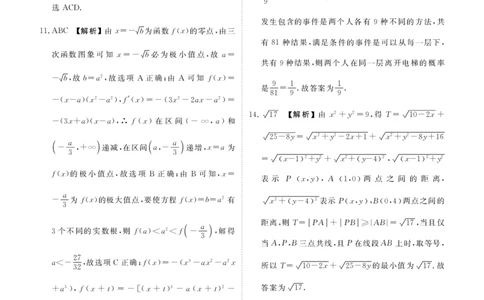 选 ACD.
11. ABC 【解析】由 x=-√b为函数 f(x)的零点,由三
次函数图象可知 x=-√b必为极小值点,故 a=
-√b,故 b=a²,故选项 A 正确;由 A 可知 f(x)=
-(x-a)(x²-a²),f′(x)=-(3x²-2ax-a²)=
-(3x+a)(x-a),∴ f(x)在区间(-∞,a)和
(-a/3,+∞)递减,在区间(a,-a/3)递增,x=a 为
f(x)的极小值点,故选项 B 正确;由 B 可知,x=
-a/3 为 f(x)的极大值点,要使方程 f(x)=b=a² 有
3 个不同的实数根,则 f(a)<a²<f(-a/3),解得
a<-27/32,故选项 C 正确;f(x)=-(x³-ax²-a²x
+a³),f(x+t)=-[(x+t)³-a(x+t)²-
9
发生包含的事件是两个人各有 9 种不同的方法,共
有 81 种结果,满足条件的事件是可以从每一层下,
共有 9 种结果,则两个人在同一层离开电梯的概率
是 9/81=1/9,故答案为 1/9.
14. √17 【解析】由 x²+y²=9,得 T=√(10-2x)+
√(25-8y)=√(x²+y²-2x+1)+√(x²+y²-8y+16)
=√((x-1)²+y²)+√(x²+(y-4)²),√((x-1)²+y²)
表示 P (x,y), A (1,0) 两点之间的距离,
√(x²+(y-4)²)表示 P(x,y),B(0,4)两点之间的
距离,则 T=|PA|+|PB|≥|AB|=√17,当且仅
当 A,P,B 三点共线,且 P 在线段 AB 上时,取等号,
所以 T=√(10-2x)+√(25-8y)的最小值为 √17. 故
答案为 √17.